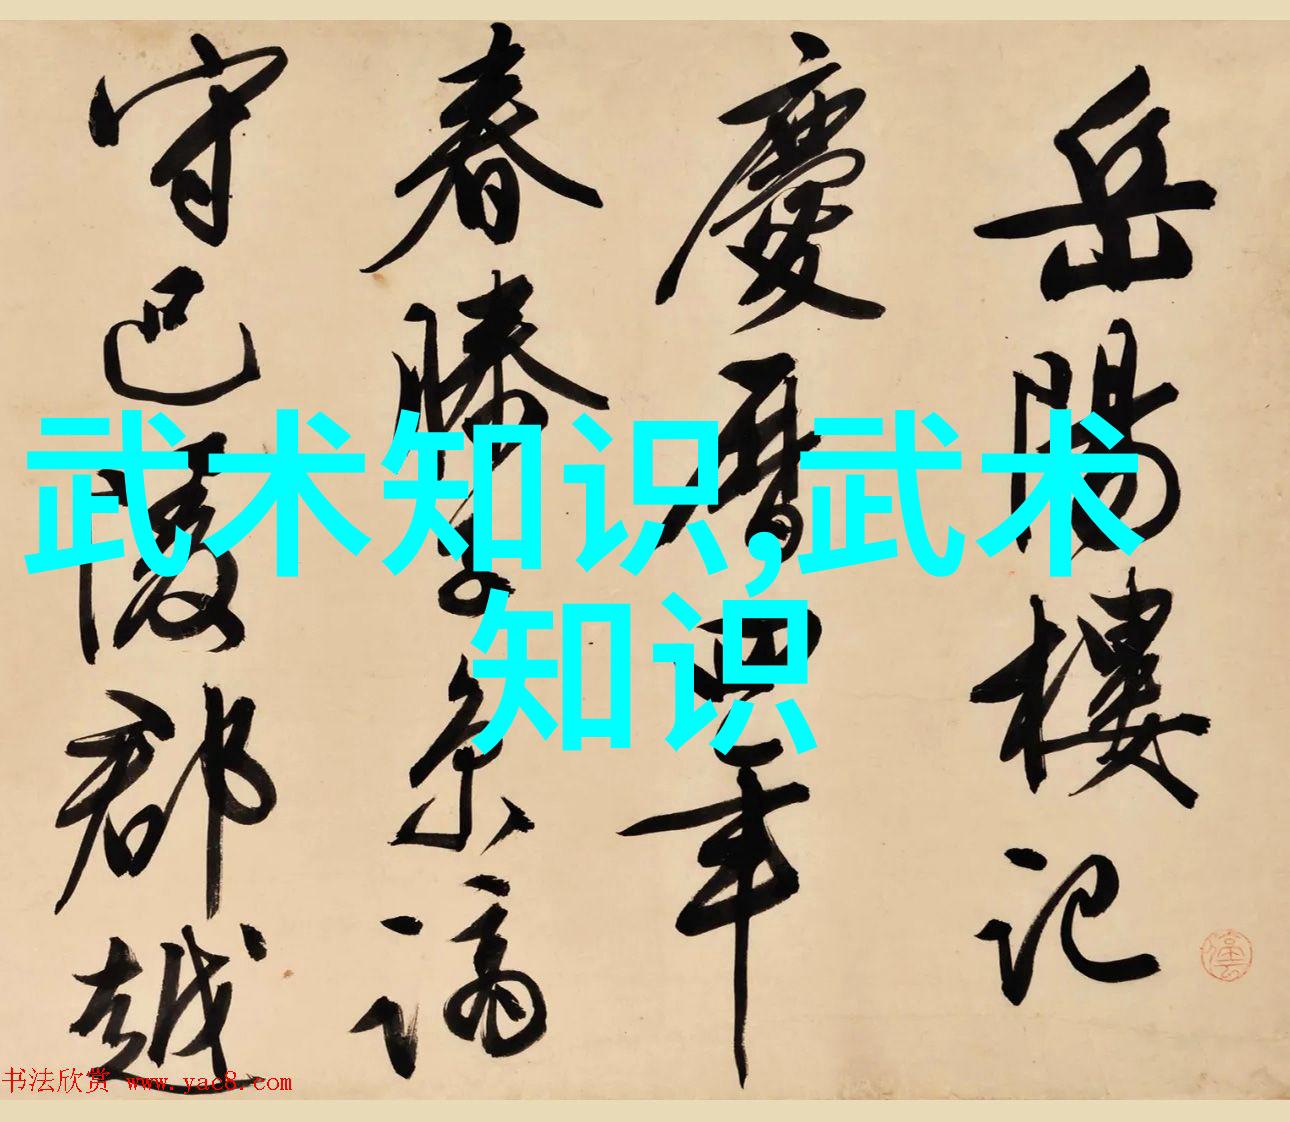 岳陽樓記
慶曆四年
春滕子京謫
守巴陵郡越
武术知识,武术
知识
书法欣赏 www.yac8.com